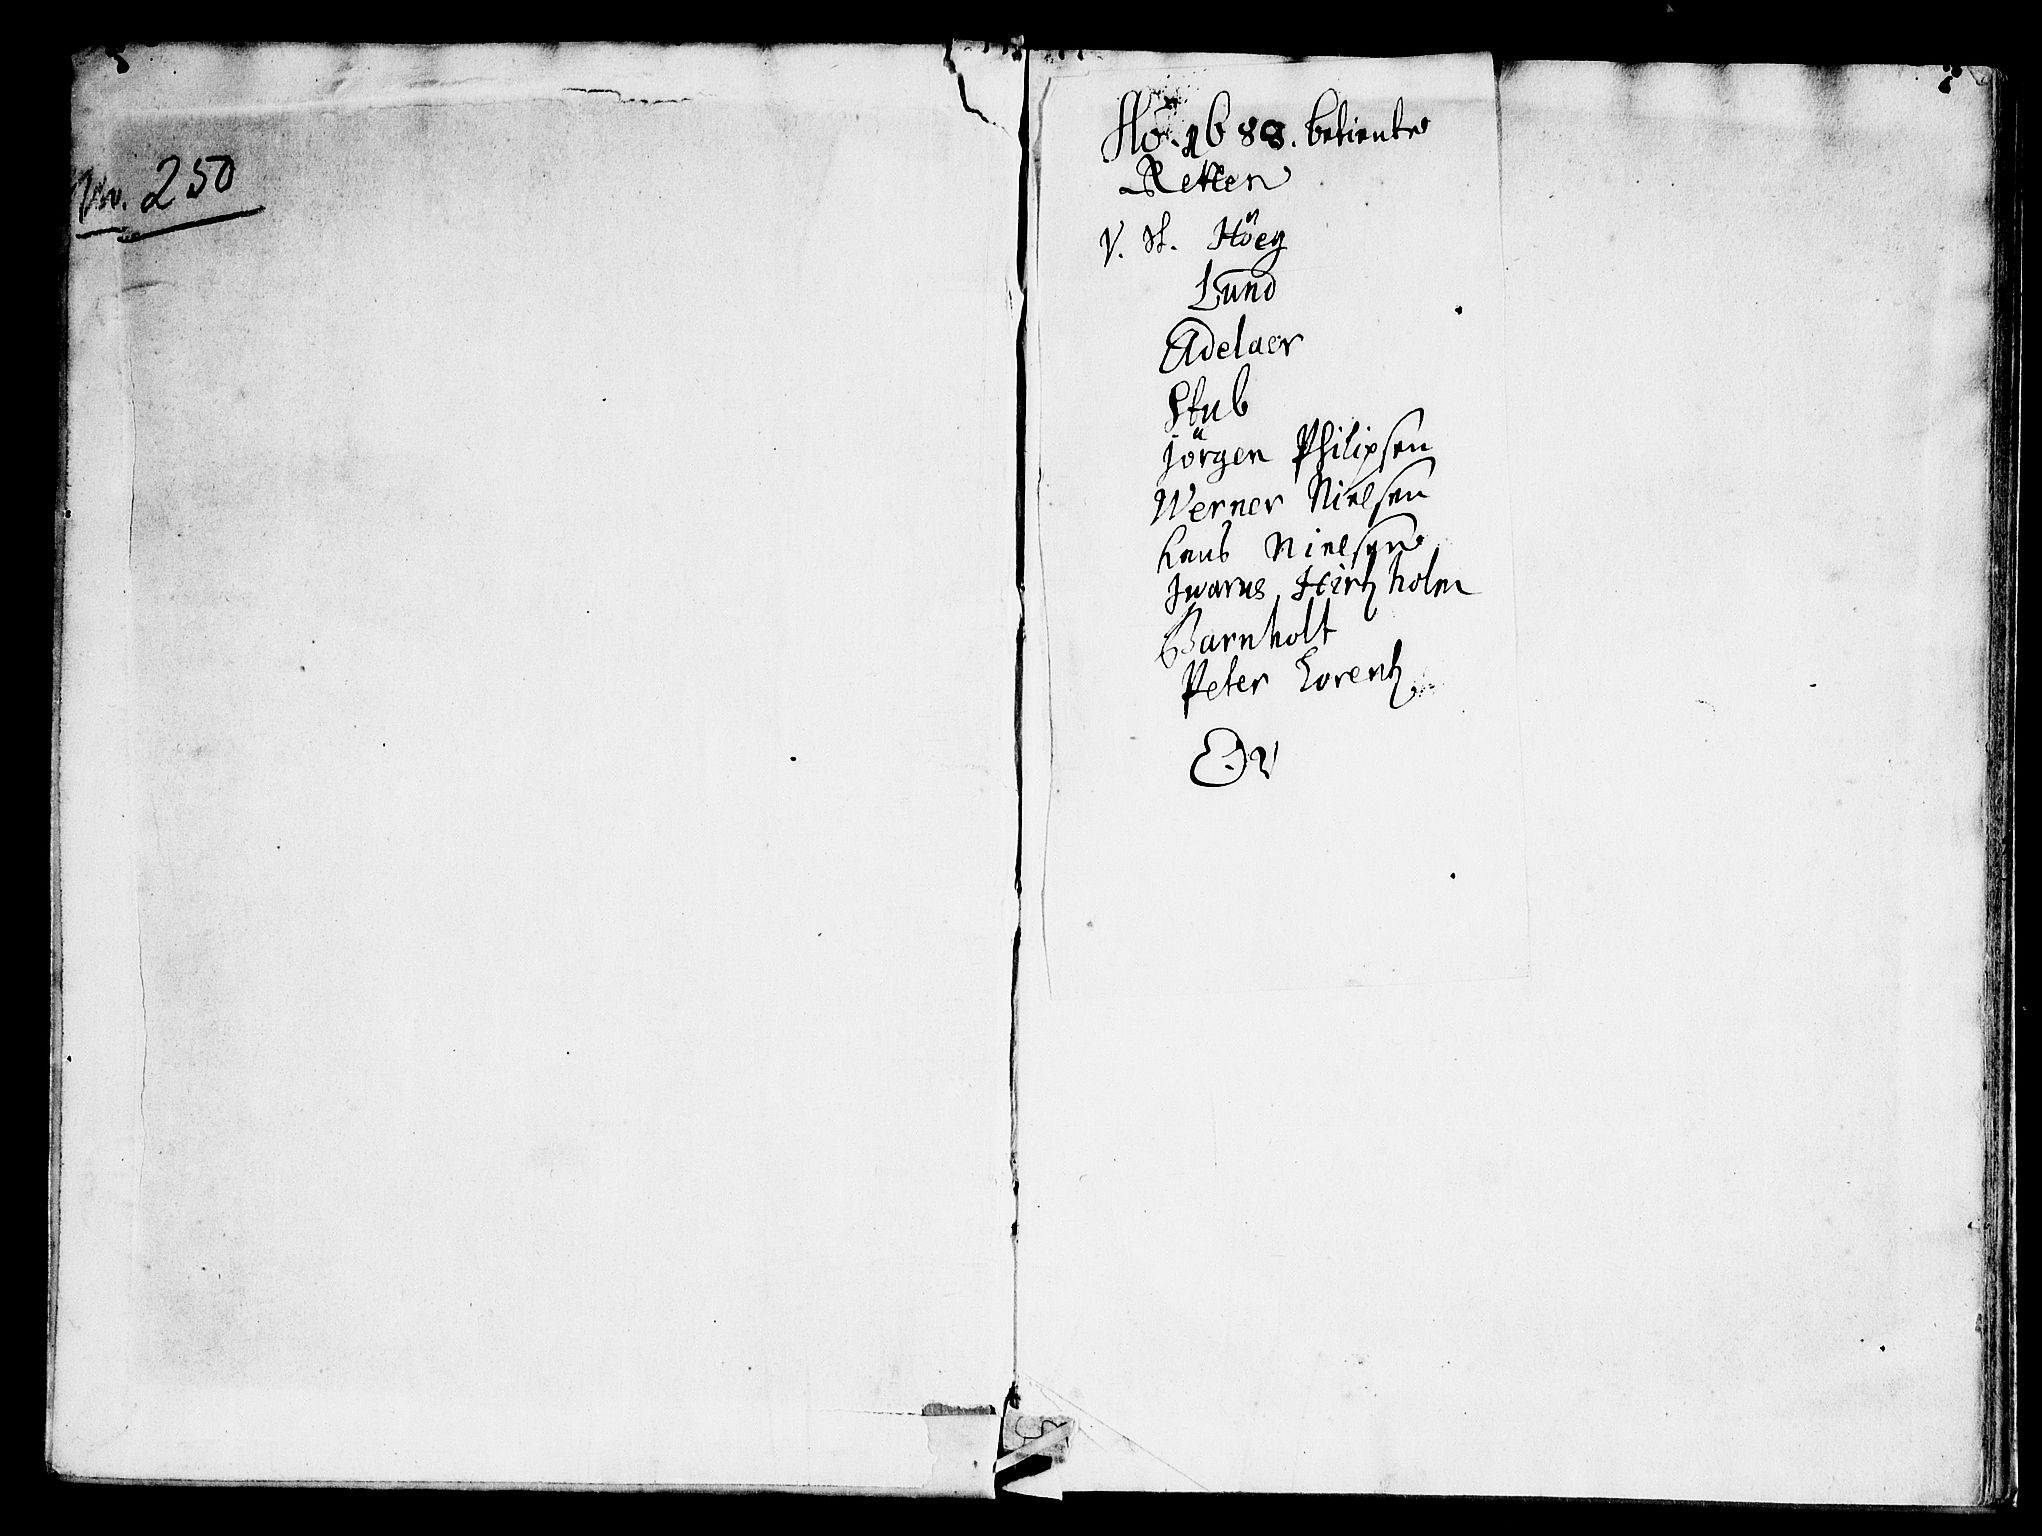 Nr. 250
Ao. 1688. betiente
Retten
V. St. Höeg
Lund
Adelaer
Stub
Jörgen Philipsen
Werner Nielsen
Hans Nielsen
Iwarus Hirtzholm
Barnholt
Peter Lorentz